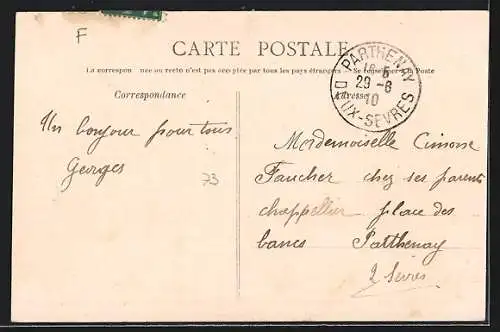 F
CARTE POSTALE
La correspondance au recto n'est pas acceptée par tous les pays étrangers — Se renseigner à la Poste
Correspondance
Adresse
PARTHENAY
18-5
29-6
10
DEUX-SEVRES
Un bonjour pour tous
Georges
73
Mademoiselle Simone
Faucher chez ses parents
chappellier place des
bancs Parthenay
2 Sèvres